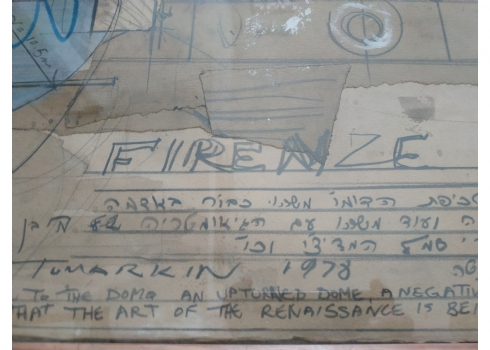 FIRENZE
כיפת הדומו משהו כבור באדמה
ועוד משהו עם הגיאומטריה של
סמל המדיצי וכו'
TUMARKIN 1978
TO THE DOMO AN UPTURNED DOME, A NEGATIV
THAT THE ART OF THE RENAISSANCE IS BEI